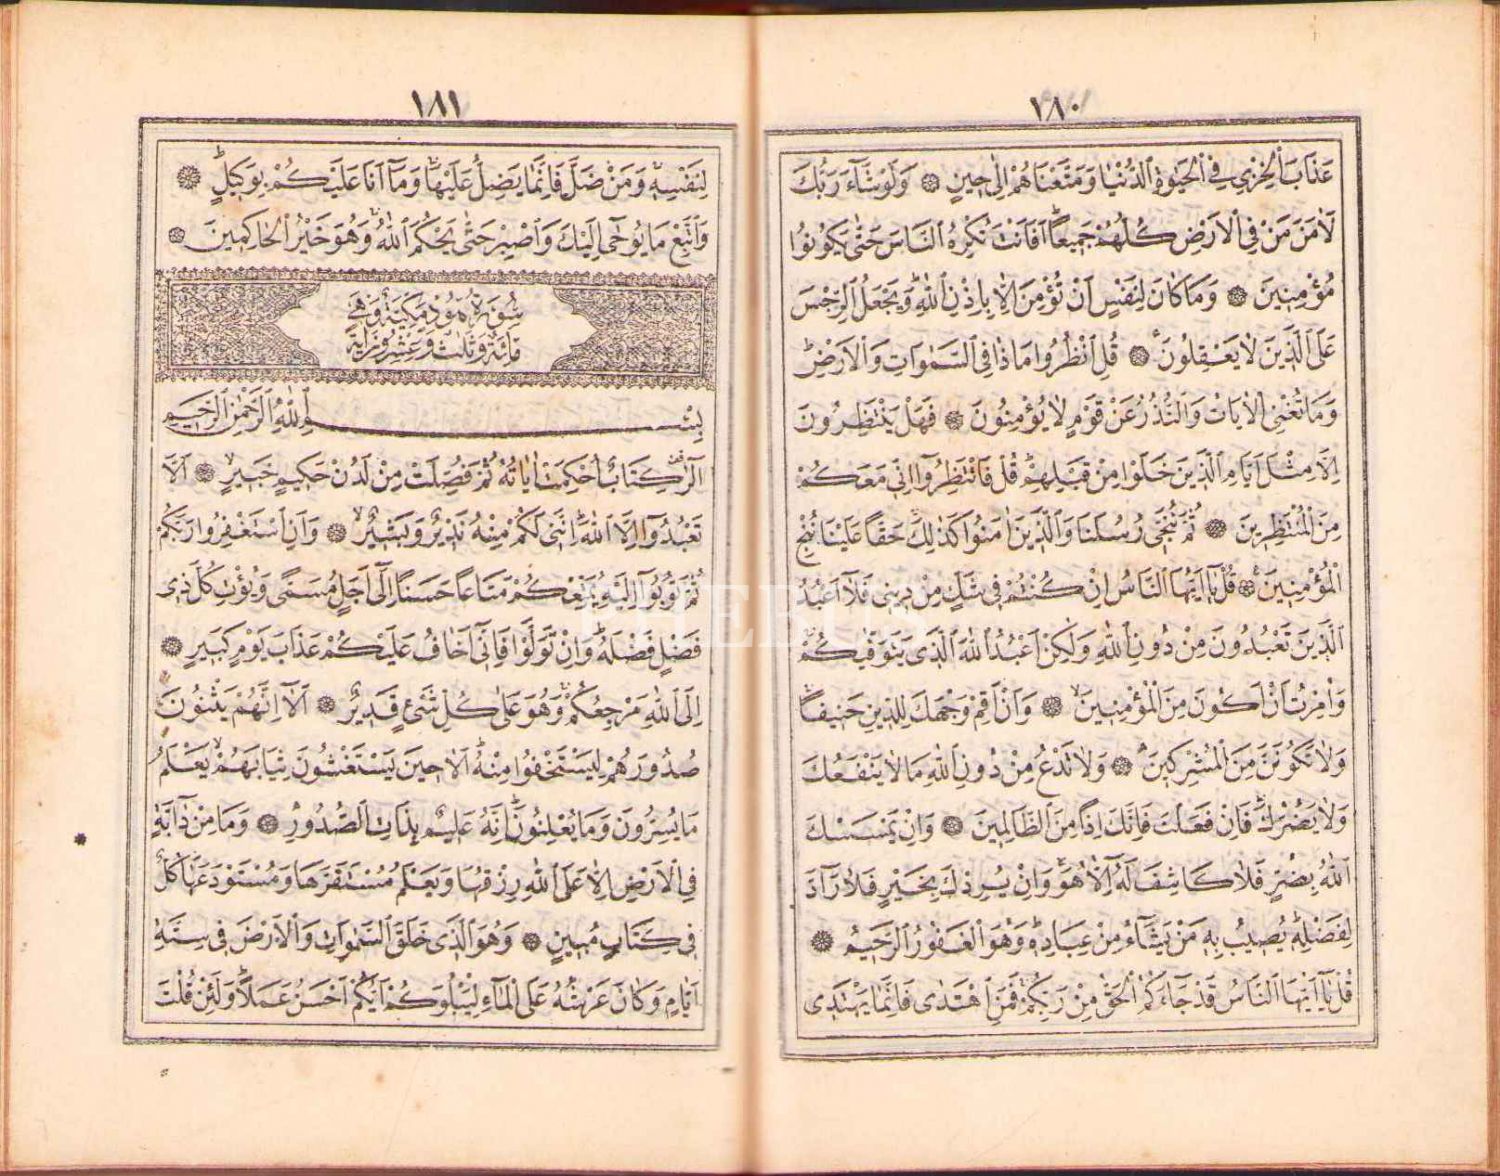 ١٨٠
عَذَابَ الْخِزْيِ فِي الْحَيٰوةِ الدُّنْيَا وَمَتَّعْنَاهُمْ اِلٰى حِينٍ ۞ وَلَوْ شَٓاءَ رَبُّكَ
لَاٰمَنَ مَنْ فِي الْاَرْضِ كُلُّهُمْ جَمِيعًاۜ اَفَاَنْتَ تُكْرِهُ النَّاسَ حَتّٰى يَكُونُوا
مُؤْمِنِينَ ۞ وَمَا كَانَ لِنَفْسٍ اَنْ تُؤْمِنَ اِلَّا بِاِذْنِ اللّٰهِۜ وَيَجْعَلُ الرِّجْسَ
عَلَى الَّذِينَ لَا يَعْقِلُونَ ۞ قُلِ انْظُرُوا مَاذَا فِي السَّمٰوَاتِ وَالْاَرْضِۜ
وَمَا تُغْنِي الْاٰيَاتُ وَالنُّذُرُ عَنْ قَوْمٍ لَا يُؤْمِنُونَ ۞ فَهَلْ يَنْتَظِرُونَ
اِلَّا مِثْلَ اَيَّامِ الَّذِينَ خَلَوْا مِنْ قَبْلِهِمْۜ قُلْ فَانْتَظِرُٓوا اِنِّي مَعَكُمْ
مِنَ الْمُنْتَظِرِينَ ۞ ثُمَّ نُنَجِّي رُسُلَنَا وَالَّذِينَ اٰمَنُوا كَذٰلِكَ حَقًّا عَلَيْنَا نُنْجِ
الْمُؤْمِنِينَ ۞ قُلْ يَٓا اَيُّهَا النَّاسُ اِنْ كُنْتُمْ فِي شَكٍّ مِنْ دِينِي فَلَٓا اَعْبُدُ
الَّذِينَ تَعْبُدُونَ مِنْ دُونِ اللّٰهِ وَلٰكِنْ اَعْبُدُ اللّٰهَ الَّذِي يَتَوَفّٰيكُمْ
وَاُمِرْتُ اَنْ اَكُونَ مِنَ الْمُؤْمِنِينَ ۞ وَاَنْ اَقِمْ وَجْهَكَ لِلدِّينِ حَنِيفًا
وَلَا تَكُونَنَّ مِنَ الْمُشْرِكِينَ ۞ وَلَا تَدْعُ مِنْ دُونِ اللّٰهِ مَا لَا يَنْفَعُكَ
وَلَا يَضُرُّكَ فَاِنْ فَعَلْتَ فَاِنَّكَ اِذًا مِنَ الظَّالِمِينَ ۞ وَاِنْ يَمْسَسْكَ
اللّٰهُ بِضُرٍّ فَلَا كَاشِفَ لَهُٓ اِلَّا هُوَۚ وَاِنْ يُرِدْكَ بِخَيْرٍ فَلَا رَٓادَّ
لِفَضْلِهِۜ يُصِيبُ بِهِ مَنْ يَشَٓاءُ مِنْ عِبَادِهِۜ وَهُوَ الْغَفُورُ الرَّحِيمُ ۞
قُلْ يَٓا اَيُّهَا النَّاسُ قَدْ جَٓاءَكُمُ الْحَقُّ مِنْ رَبِّكُمْۚ فَمَنِ اهْتَدٰى فَاِنَّمَا يَهْتَدِي
١٨١
لِنَفْسِهِۚ وَمَنْ ضَلَّ فَاِنَّمَا يَضِلُّ عَلَيْهَاۚ وَمَٓا اَنَا عَلَيْكُمْ بِوَكِيلٍۜ ۞
وَاتَّبِعْ مَا يُوحٰٓى اِلَيْكَ وَاصْبِرْ حَتّٰى يَحْكُمَ اللّٰهُۚ وَهُوَ خَيْرُ الْحَاكِمِينَ ۞
سُورَةُ هُودٍ مَكِّيَّةٌ وَهِيَ
مِائَةٌ وَثَلٰثٌ وَعِشْرُونَ اٰيَةً
بِسْمِ اللّٰهِ الرَّحْمٰنِ الرَّحِيمِ
الٓرٰ كِتَابٌ اُحْكِمَتْ اٰيَاتُهُ ثُمَّ فُصِّلَتْ مِنْ لَدُنْ حَكِيمٍ خَبِيرٍ ۞ اَلَّا
تَعْبُدُٓوا اِلَّا اللّٰهَۜ اِنَّنِي لَكُمْ مِنْهُ نَذِيرٌ وَبَشِيرٌ ۞ وَاَنِ اسْتَغْفِرُوا رَبَّكُمْ
ثُمَّ تُوبُٓوا اِلَيْهِ يُمَتِّعْكُمْ مَتَاعًا حَسَنًا اِلٰٓى اَجَلٍ مُسَمًّى وَيُؤْتِ كُلَّ ذِي
فَضْلٍ فَضْلَهُۜ وَاِنْ تَوَلَّوْا فَاِنِّٓي اَخَافُ عَلَيْكُمْ عَذَابَ يَوْمٍ كَبِيرٍ ۞
اِلَى اللّٰهِ مَرْجِعُكُمْۚ وَهُوَ عَلٰى كُلِّ شَيْءٍ قَدِيرٌ ۞ اَلَٓا اِنَّهُمْ يَثْنُونَ
صُدُورَهُمْ لِيَسْتَخْفُوا مِنْهُۜ اَلَا حِينَ يَسْتَغْشُونَ ثِيَابَهُمْ يَعْلَمُ
مَا يُسِرُّونَ وَمَا يُعْلِنُونَۜ اِنَّهُ عَلِيمٌ بِذَاتِ الصُّدُورِ ۞ وَمَا مِنْ دَٓابَّةٍ
فِي الْاَرْضِ اِلَّا عَلَى اللّٰهِ رِزْقُهَا وَيَعْلَمُ مُسْتَقَرَّهَا وَمُسْتَوْدَعَهَاۜ كُلٌّ
فِي كِتَابٍ مُبِينٍ ۞ وَهُوَ الَّذِي خَلَقَ السَّمٰوَاتِ وَالْاَرْضَ فِي سِتَّةِ
اَيَّامٍ وَكَانَ عَرْشُهُ عَلَى الْمَٓاءِ لِيَبْلُوَكُمْ اَيُّكُمْ اَحْسَنُ عَمَلًاۜ وَلَئِنْ قُلْتَ
PHEBUS